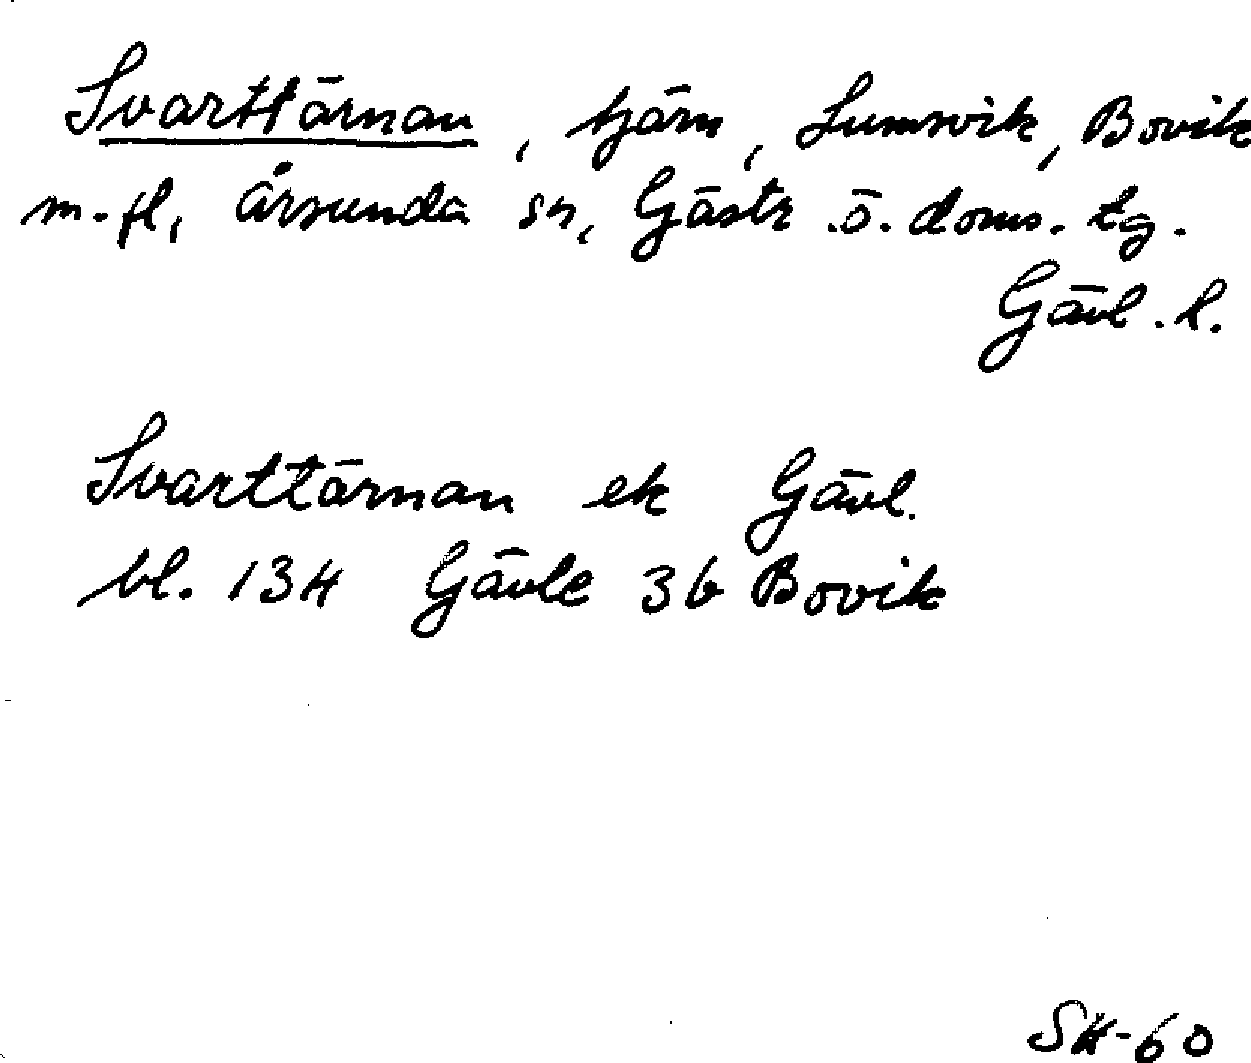 Svarttärnan, tjärn, Sumsvik, Bovik
m. fl, Årsunda sn, Gästr. ö. doms. tg.
Gävl. l.
Svarttärnan ek Gävl.
bl. 134 Gävle 3b Bovik
SK-60